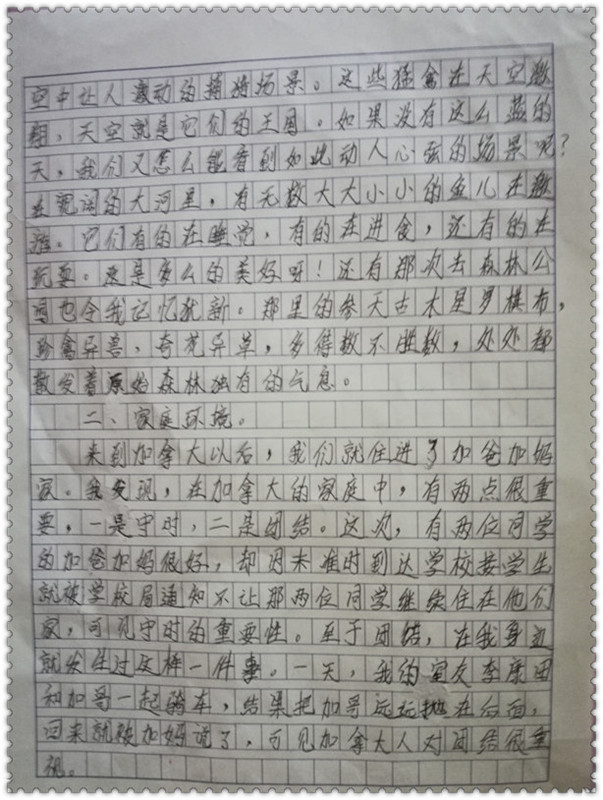 空中让人激动的捕猎场景。这些猛禽在天空翱
翔，天空就是它们的王国。如果没有这么蓝的
天，我们又怎么能看到如此动人心弦的场景呢？
在宽阔的大河里，有无数大大小小的鱼儿在遨
游。它们有的在睡觉，有的在进食，还有的在
玩耍。这是多么的美好呀！还有那次去森林公
园也令我记忆犹新。那里的参天古木星罗棋布，
珍禽异兽、奇花异草，多得数不胜数，处处都
散发着原始森林独有的气息。
二、家庭环境。
来到加拿大以后，我们就住进了加爸加妈
家。我发现，在加拿大的家庭中，有两点很重
要，一是守时，二是团结。这次，有两位同学
的加爸加妈很好，却因未准时到达学校接学生
就被学校局通知不让那两位同学继续住在他们
家，可见守时的重要性。至于团结，在我身边
就发生过这样一件事。一天，我的室友李康因
和加哥一起骑车，结果把加哥远远抛在后面，
回来就被加妈说了，可见加拿大人对团结很重
视。